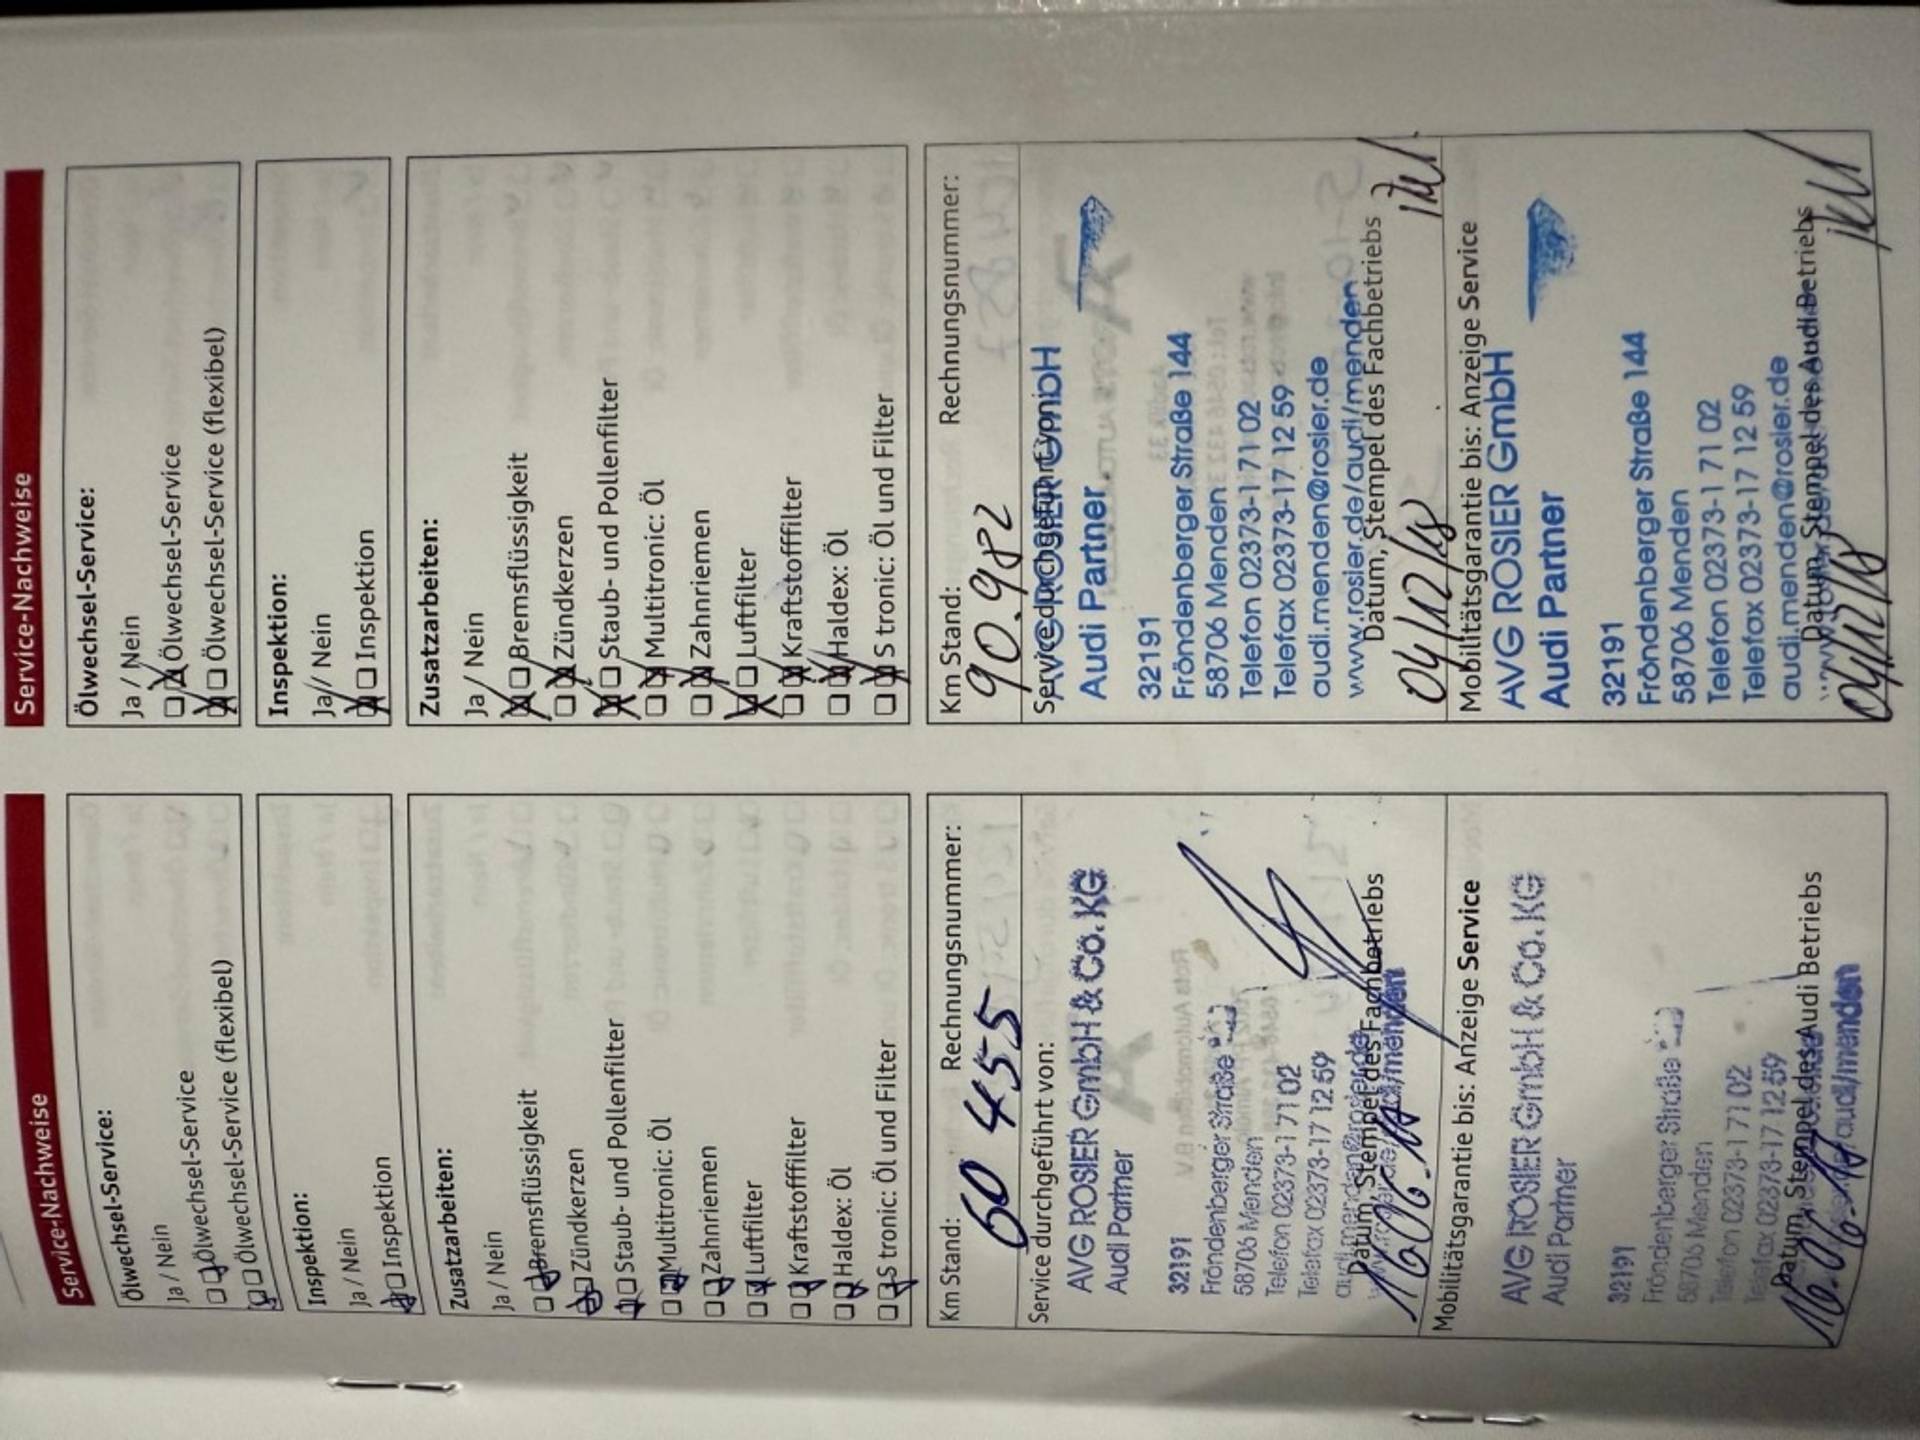 Service-Nachweise
Ölwechsel-Service:
Ja / Nein
Ölwechsel-Service
Ölwechsel-Service (flexibel)
Inspektion:
Ja / Nein
Inspektion
Zusatzarbeiten:
Ja / Nein
Bremsflüssigkeit
Zündkerzen
Staub- und Pollenfilter
Multitronic: Öl
Zahnriemen
Luftfilter
Kraftstofffilter
Haldex: Öl
S tronic: Öl und Filter
Km Stand: Rechnungsnummer:
60 455
Service durchgeführt von:
AVG ROSIER GmbH & Co. KG
Audi Partner
32191
Fröndenberger Straße
58706 Menden
Telefon 02373-1 71 02
Telefax 02373-17 12 59
audi.menden@rosier.de
Datum, Stempel des Fachbetriebs
Mobilitätsgarantie bis: Anzeige Service
AVG ROSIER GmbH & Co. KG
Audi Partner
32191
Fröndenberger Straße
58706 Menden
Telefon 02373-1 71 02
Telefax 02373-17 12 59
Datum, Stempel des Audi Betriebs
audi/menden
Service-Nachweise
Ölwechsel-Service:
Ja / Nein
Ölwechsel-Service
Ölwechsel-Service (flexibel)
Inspektion:
Ja / Nein
Inspektion
Zusatzarbeiten:
Ja / Nein
Bremsflüssigkeit
Zündkerzen
Staub- und Pollenfilter
Multitronic: Öl
Zahnriemen
Luftfilter
Kraftstofffilter
Haldex: Öl
S tronic: Öl und Filter
Km Stand: Rechnungsnummer:
90.982
Service durchgeführt von:
AVG ROSIER GmbH
Audi Partner
32191
Fröndenberger Straße 144
58706 Menden
Telefon 02373-1 71 02
Telefax 02373-17 12 59
audi.menden@rosier.de
www.rosier.de/audi/menden
Datum, Stempel des Fachbetriebs
04/12/18
Mobilitätsgarantie bis: Anzeige Service
AVG ROSIER GmbH
Audi Partner
32191
Fröndenberger Straße 144
58706 Menden
Telefon 02373-1 71 02
Telefax 02373-17 12 59
audi.menden@rosier.de
Datum, Stempel des Audi Betriebs
04/12/18